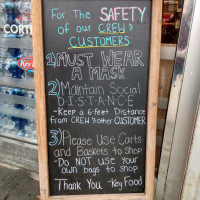 CORT
Key
For the SAFETY
of our CREW &
CUSTOMERS
1) MUST WEAR
A MASK
2) Maintain Social
D-I-S-T-A-N-C-E
-Keep a 6-feet Distance
from CREW & other CUSTOMER
3) Please Use Carts
and Baskets to Shop
-DO NOT use your
own bags to shop
Thank You -Key Food